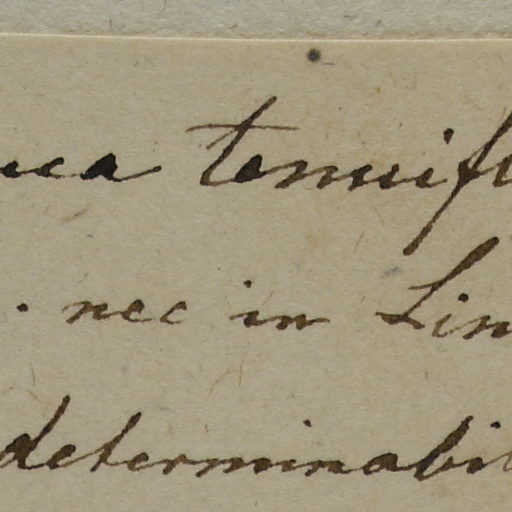 uca tenuifl
. nec in Linn
determinabil